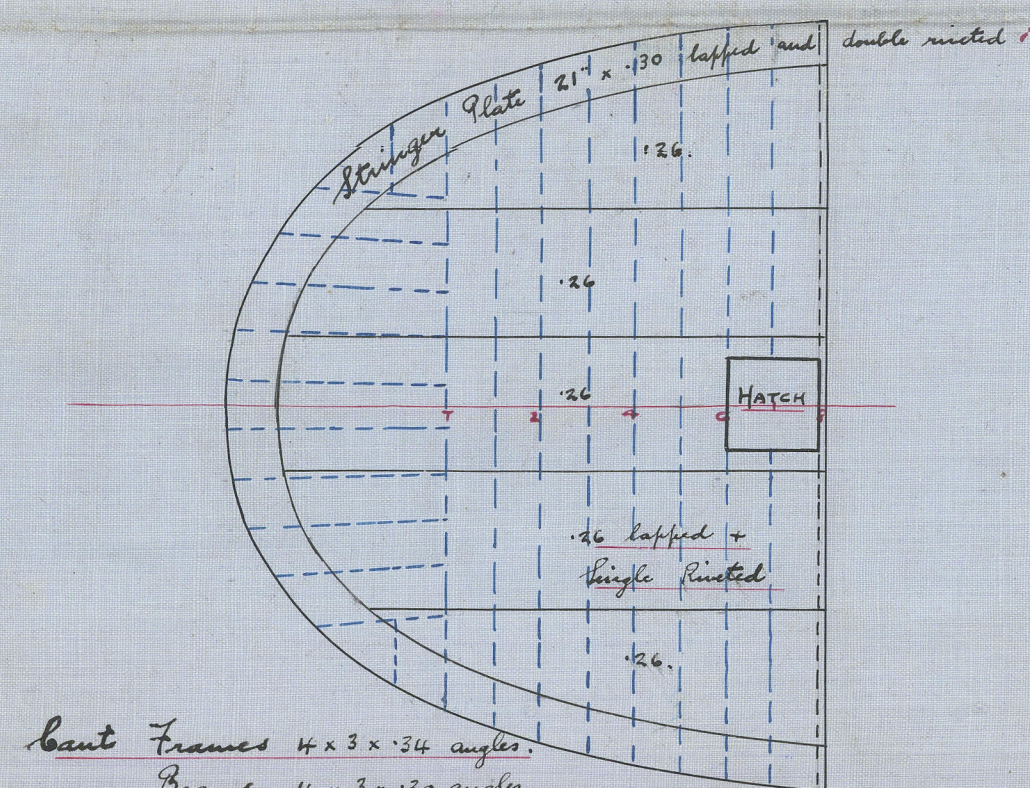 Stringer Plate 21" x .30 lapped and double riveted
.26.
.26
.26
HATCH
T 2 4 6 8
.26 lapped +
Single Riveted
.26.
Cant Frames 4 x 3 x .34 angles.
4 x 3 x .30 angles